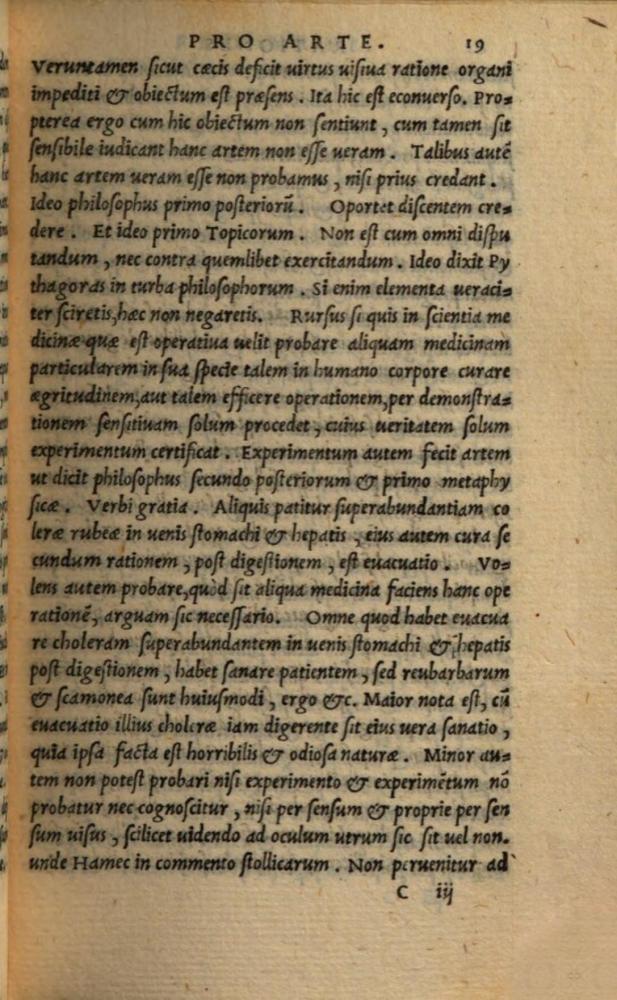 PRO ARTE. 19
Veruntamen ſicut cæcis deficit uirtus uiſiua ratione organi
impediti & obiectum est præſens. Ita hic est econuerſo. Pro-
pterea ergo cum hic obiectum non ſentiunt, cum tamen ſit
ſenſibile iudicant hanc artem non eſſe ueram. Talibus autē
hanc artem ueram eſſe non probamus, niſi prius credant.
Ideo philoſophus primo poſteriorū. Oportet diſcentem cre-
dere. Et ideo primo Topicorum. Non est cum omni diſpu
tandum, nec contra quemlibet exercitandum. Ideo dixit Py
thagoras in turba philoſophorum. Si enim elementa ueraci-
ter ſciretis, hæc non negaretis. Rurſus ſi quis in ſcientia me
dicinæ quæ est operatiua uelit probare aliquam medicinam
particularem in ſua ſpecie talem in humano corpore curare
ægritudinem, aut talem efficere operationem, per demonſtra-
tionem ſenſitiuam ſolum procedet, cuius ueritatem ſolum
experimentum certificat. Experimentum autem fecit artem
ut dicit philoſophus ſecundo poſteriorum & primo metaphy
ſicæ. Verbi gratia. Aliquis patitur ſuperabundantiam co
leræ rubeæ in uenis ſtomachi & hepatis, eius autem cura ſe
cundum rationem, poſt digeſtionem, est euacuatio. Vo-
lens autem probare, quòd ſit aliqua medicina faciens hanc ope
rationē, arguam ſic neceſſario. Omne quod habet euacua
re choleram ſuperabundantem in uenis ſtomachi & hepatis
poſt digeſtionem, habet ſanare patientem, ſed reubarbarum
& ſcamonea ſunt huiuſmodi, ergo &c. Maior nota est, cū
euacuatio illius choleræ iam digerente ſit eius uera ſanatio,
quia ipſa facta est horribilis & odioſa naturæ. Minor au-
tem non potest probari niſi experimento & experimētum nō
probatur nec cognoſcitur, niſi per ſenſum & proprie per ſen
ſum uiſus, ſcilicet uidendo ad oculum utrum ſic ſit uel non.
unde Hamec in commento ſtollicarum. Non peruenitur ad
C iij